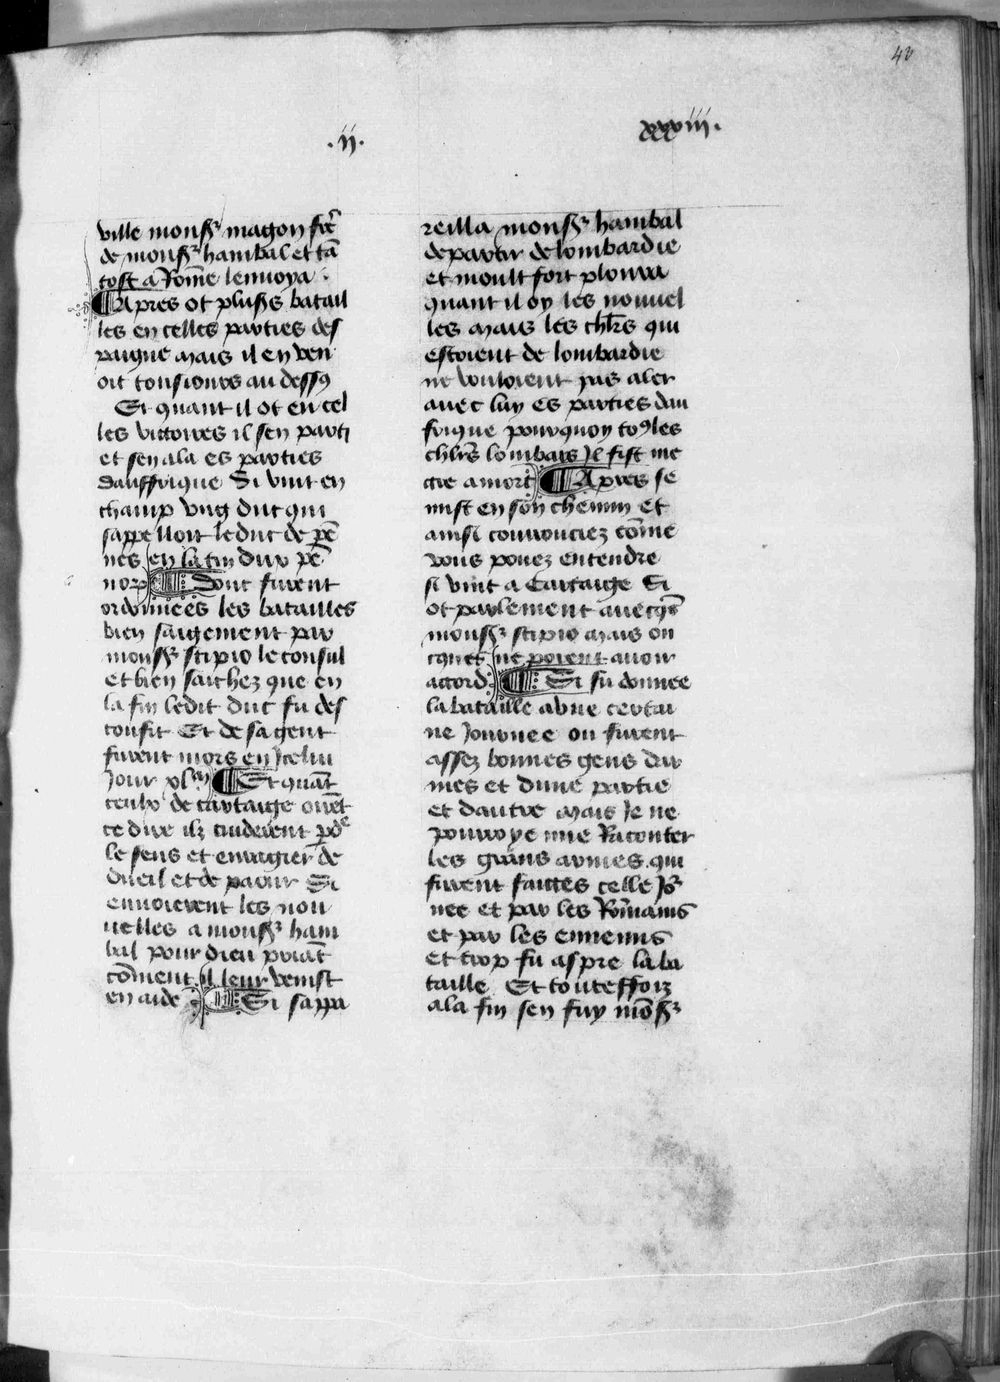 40
.ii.
xxxiii.
ville monsr magon frē
de monsr hanibal et tā
tost a Rōme lenvoya :
¶ Apres ot plusrs batail
les en celles parties des
paigne mais il en ven
oit tousiours au dessꝰ
Et quant il ot en cel
les victoires il sen parti
et sen ala es parties
dauffrique Si vint en
champ ung duc qui
sappelloit le duc de pē
nes en latin dux pe
nor ¶ Dont furent
ordonnees les batailles
bien saigement par
monsr scipio le consul
et bien saichez que en
la fin ledit duc fu des
confit Et de sa gent
furent mors en Icelui
Jour xlm ¶ Et quāt
ceulx de cartaige oirēt
ce dire ilz cuiderent pde
le sens et enragier de
dueil et de paour Si
envoierent les nou
velles a monsr hani
bal pour dieu priāt
cōment il leur venist
en aide ¶ Si sappa
reilla monsr hanibal
de partir de lombardie
et moult fort ploura
quant il oy les nouvel
les mais les chlrs qui
estoient de lombardie
ne vouloient pas aler
avec luy es parties dau
frique pourquoy toꝰ les
chlrs lombars Il fist me
ctre a mort ¶ Apres se
mist en son chemin et
ainsi courrouciez cōme
vous povez entendre
si vint a Cartaige Si
ot parlement avecqs
monsr scipio mais on
cques ne porent avoir
accord ¶ Si fu donnee
la bataille a une certai
ne Journee ou furent
assez bonnes gens dar
mes et dune partie
et dautre mais Je ne
pourroye mie Raconter
les grans armes qui
furent faictes celle Jor
nee et par les Romains
et par les ennemis
et trop fu aspre la ba
taille Et touteffoiz
a la fin sen fuy mōsr